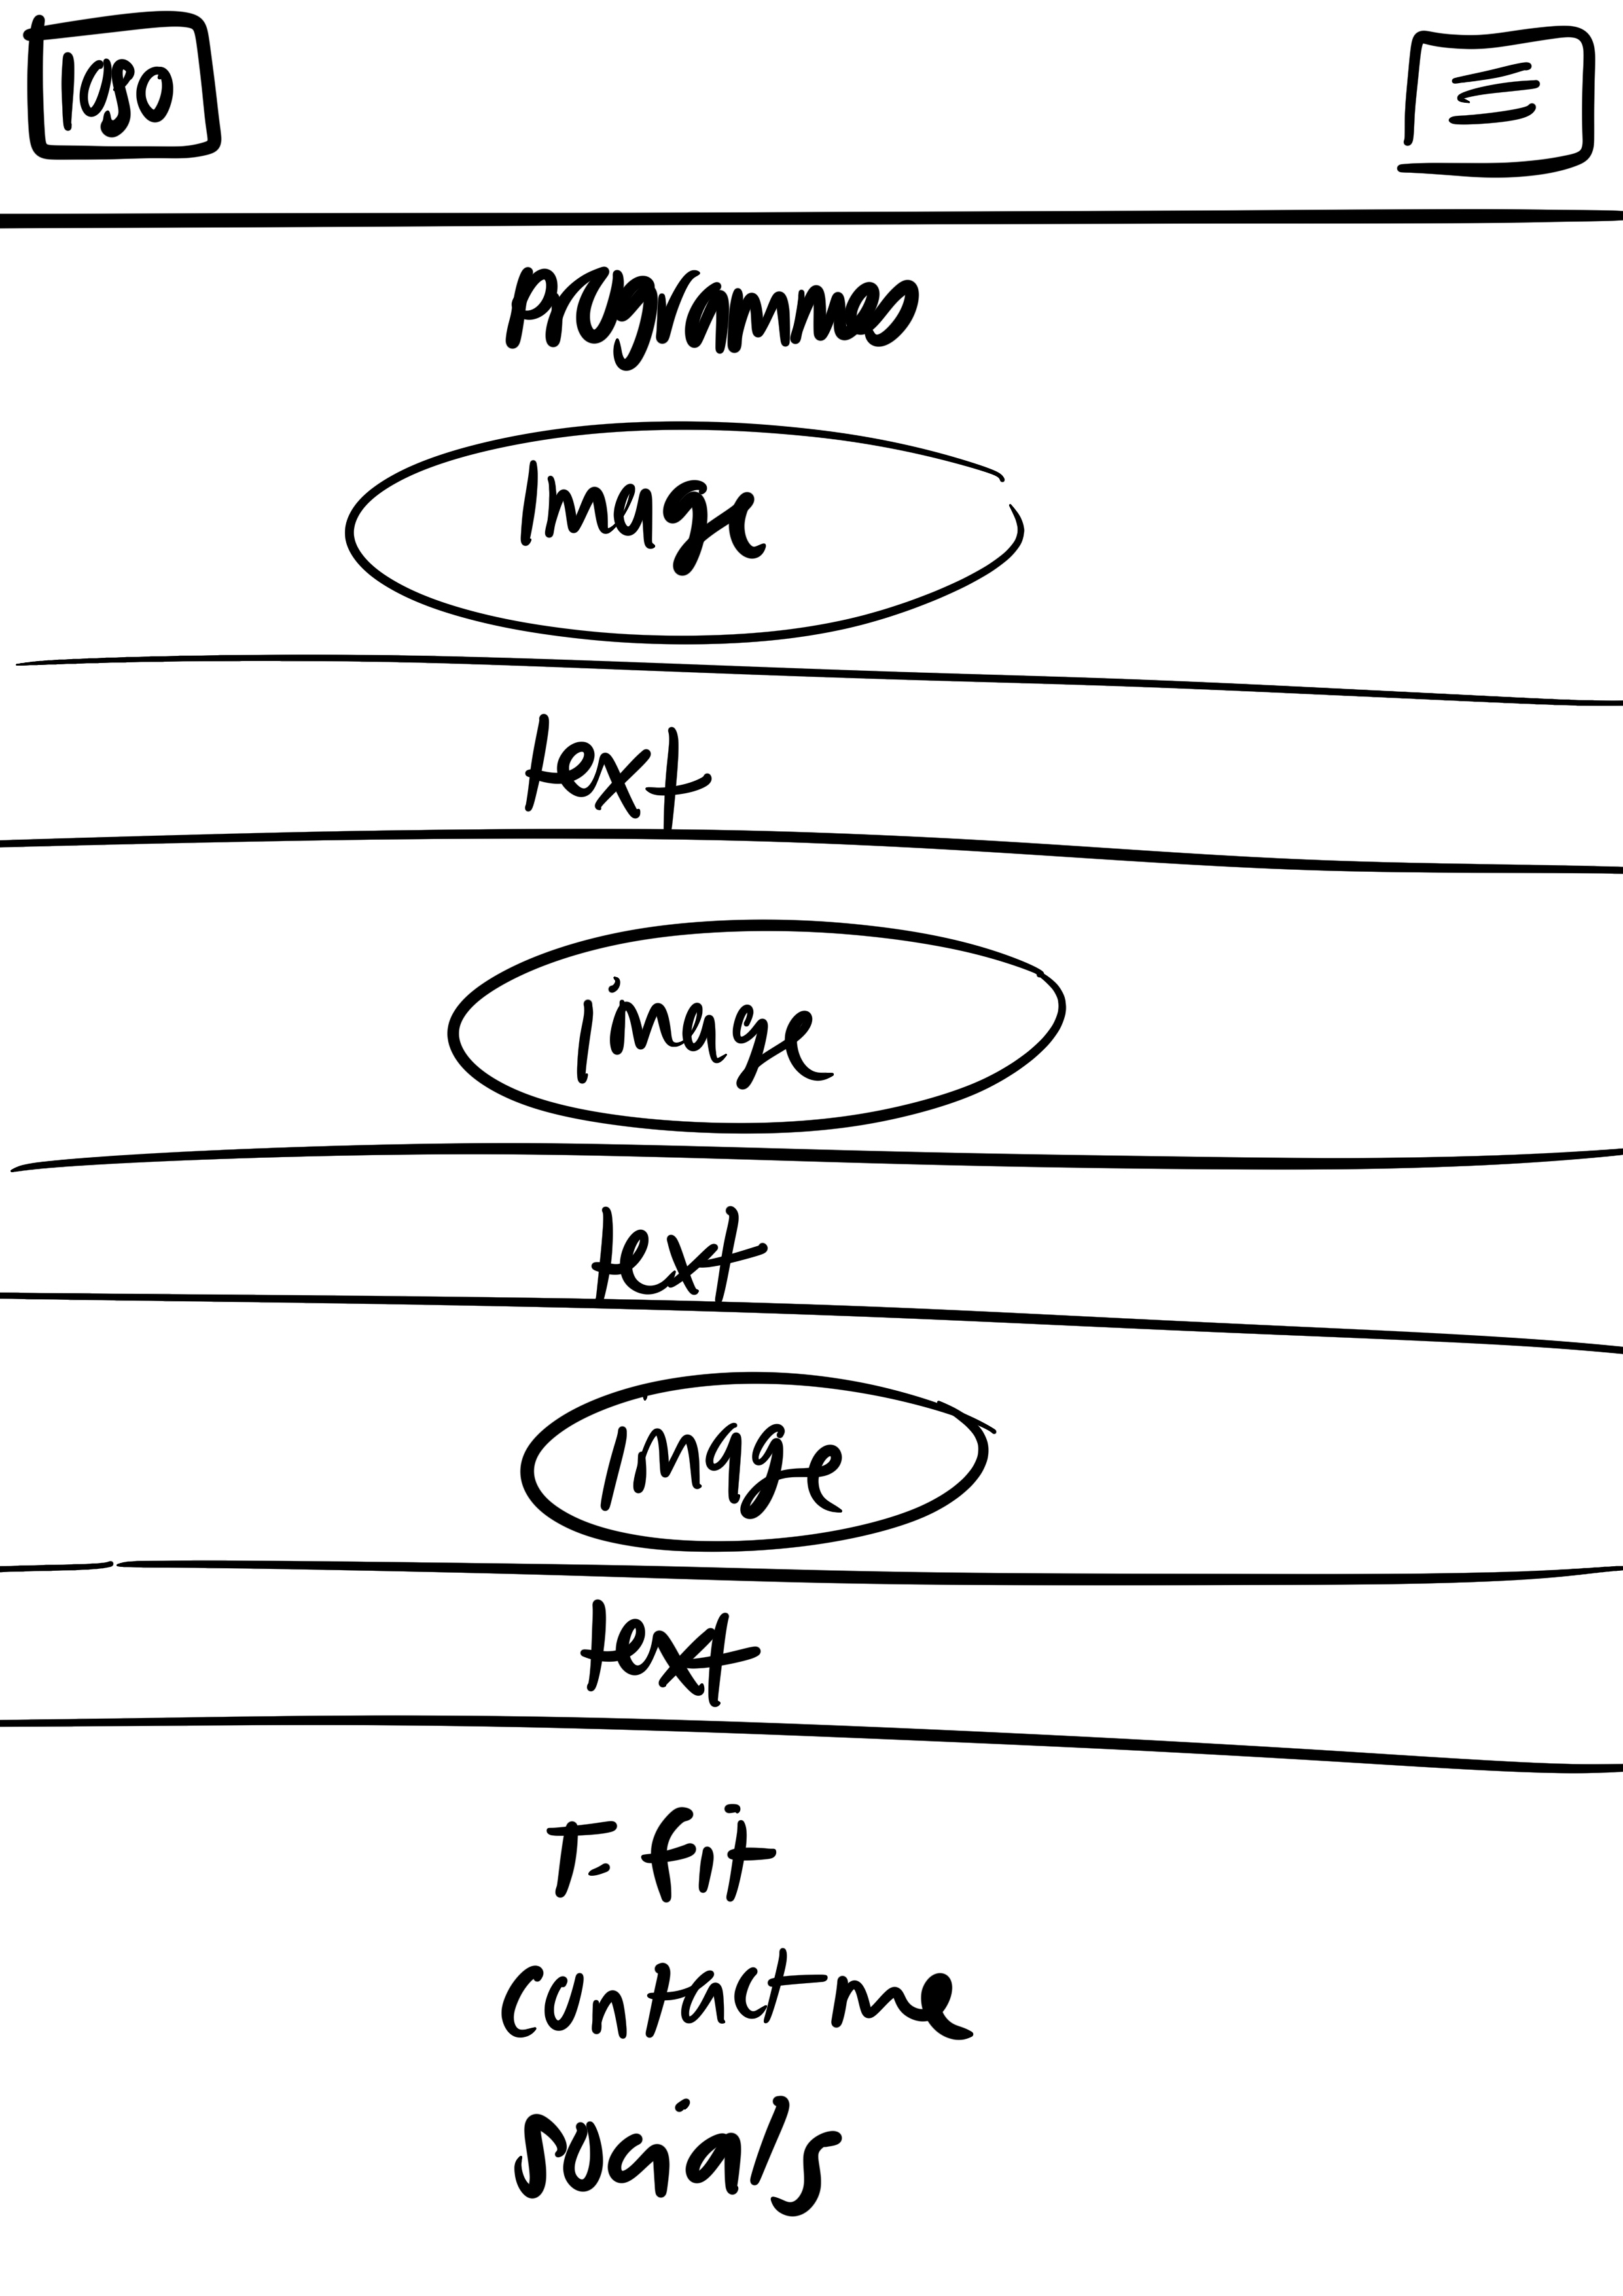 logo
programmes
Image
text
image
text
Image
text
T-fit
contact me
socials